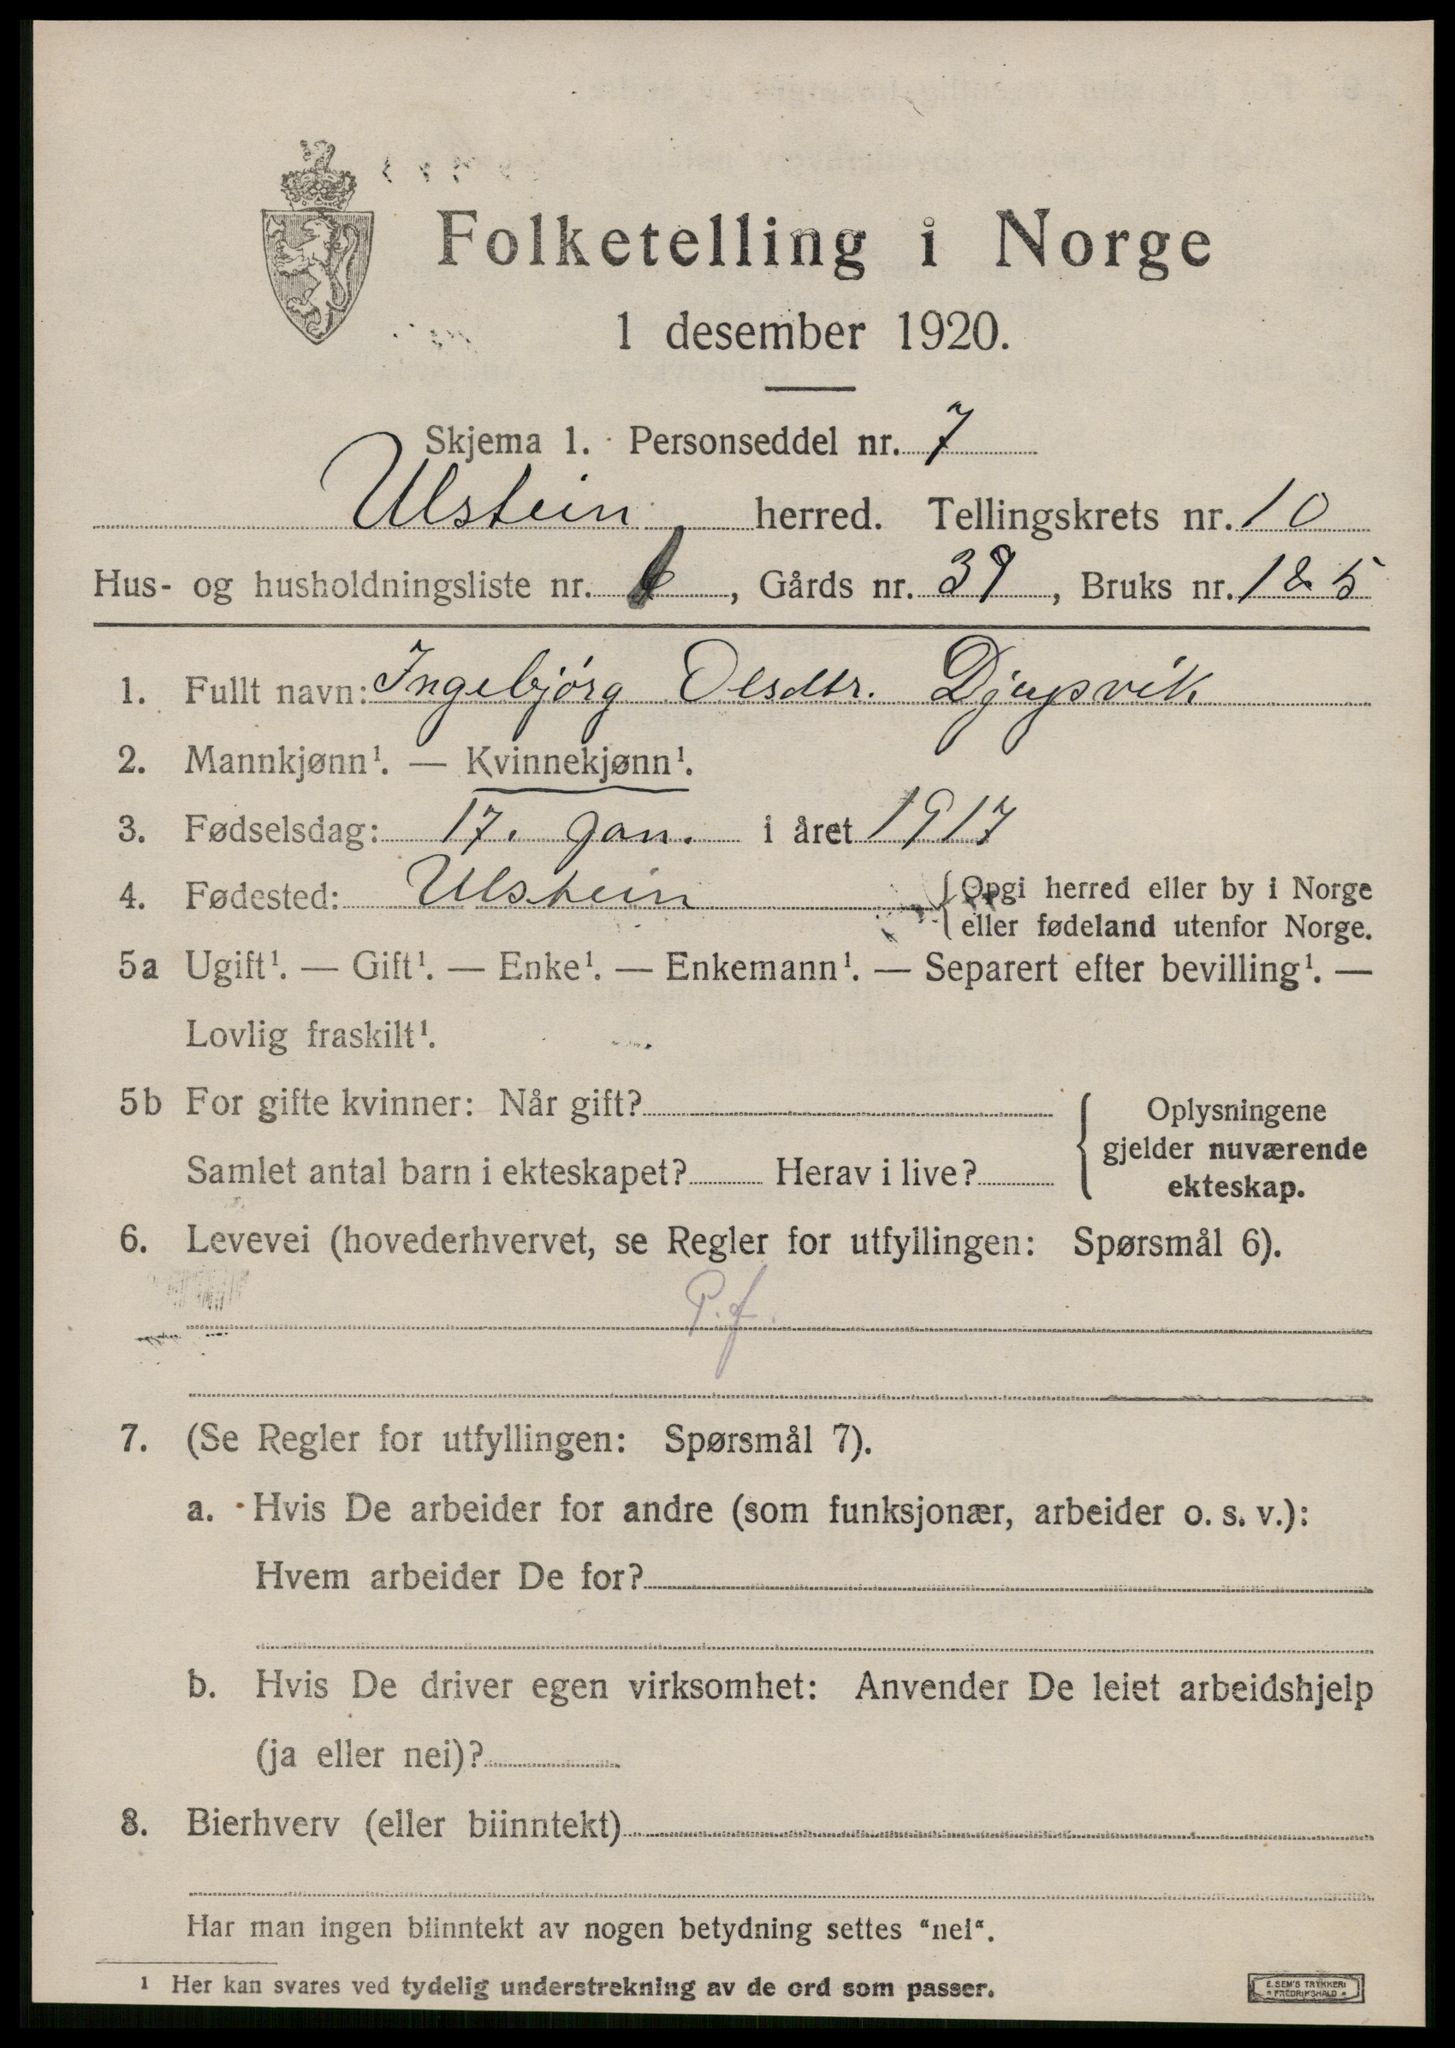 Folketelling i Norge
1 desember 1920.
Skjema 1. Personseddel nr. 7
Ulstein herred. Tellingskrets nr. 10
Hus- og husholdningsliste nr. 1, Gårds nr. 39, Bruks nr. 1 & 5
1. Fullt navn: Ingebjørg Olsdtr. Djupvik
2. Mannkjønn¹. — Kvinnekjønn¹.
3. Fødselsdag: 17. jan. i året 1917
4. Fødested: Ulstein {Opgi herred eller by i Norge
eller fødeland utenfor Norge.
5a Ugift¹. — Gift¹. — Enke¹. — Enkemann¹. — Separert efter bevilling¹. —
Lovlig fraskilt¹.
5b For gifte kvinner: Når gift?
Samlet antal barn i ekteskapet? Herav i live?
Oplysningene
gjelder nuværende
ekteskap.
6. Levevei (hovederhvervet, se Regler for utfyllingen: Spørsmål 6).
P.f.
7. (Se Regler for utfyllingen: Spørsmål 7).
a. Hvis De arbeider for andre (som funksjonær, arbeider o. s. v.):
Hvem arbeider De for?
b. Hvis De driver egen virksomhet: Anvender De leiet arbeidshjelp
(ja eller nei)?
8. Bierhverv (eller biinntekt)
Har man ingen biinntekt av nogen betydning settes "nei".
¹ Her kan svares ved tydelig understrekning av de ord som passer.
E. SEM'S TRYKKERI
* FREDRIKSHALD *